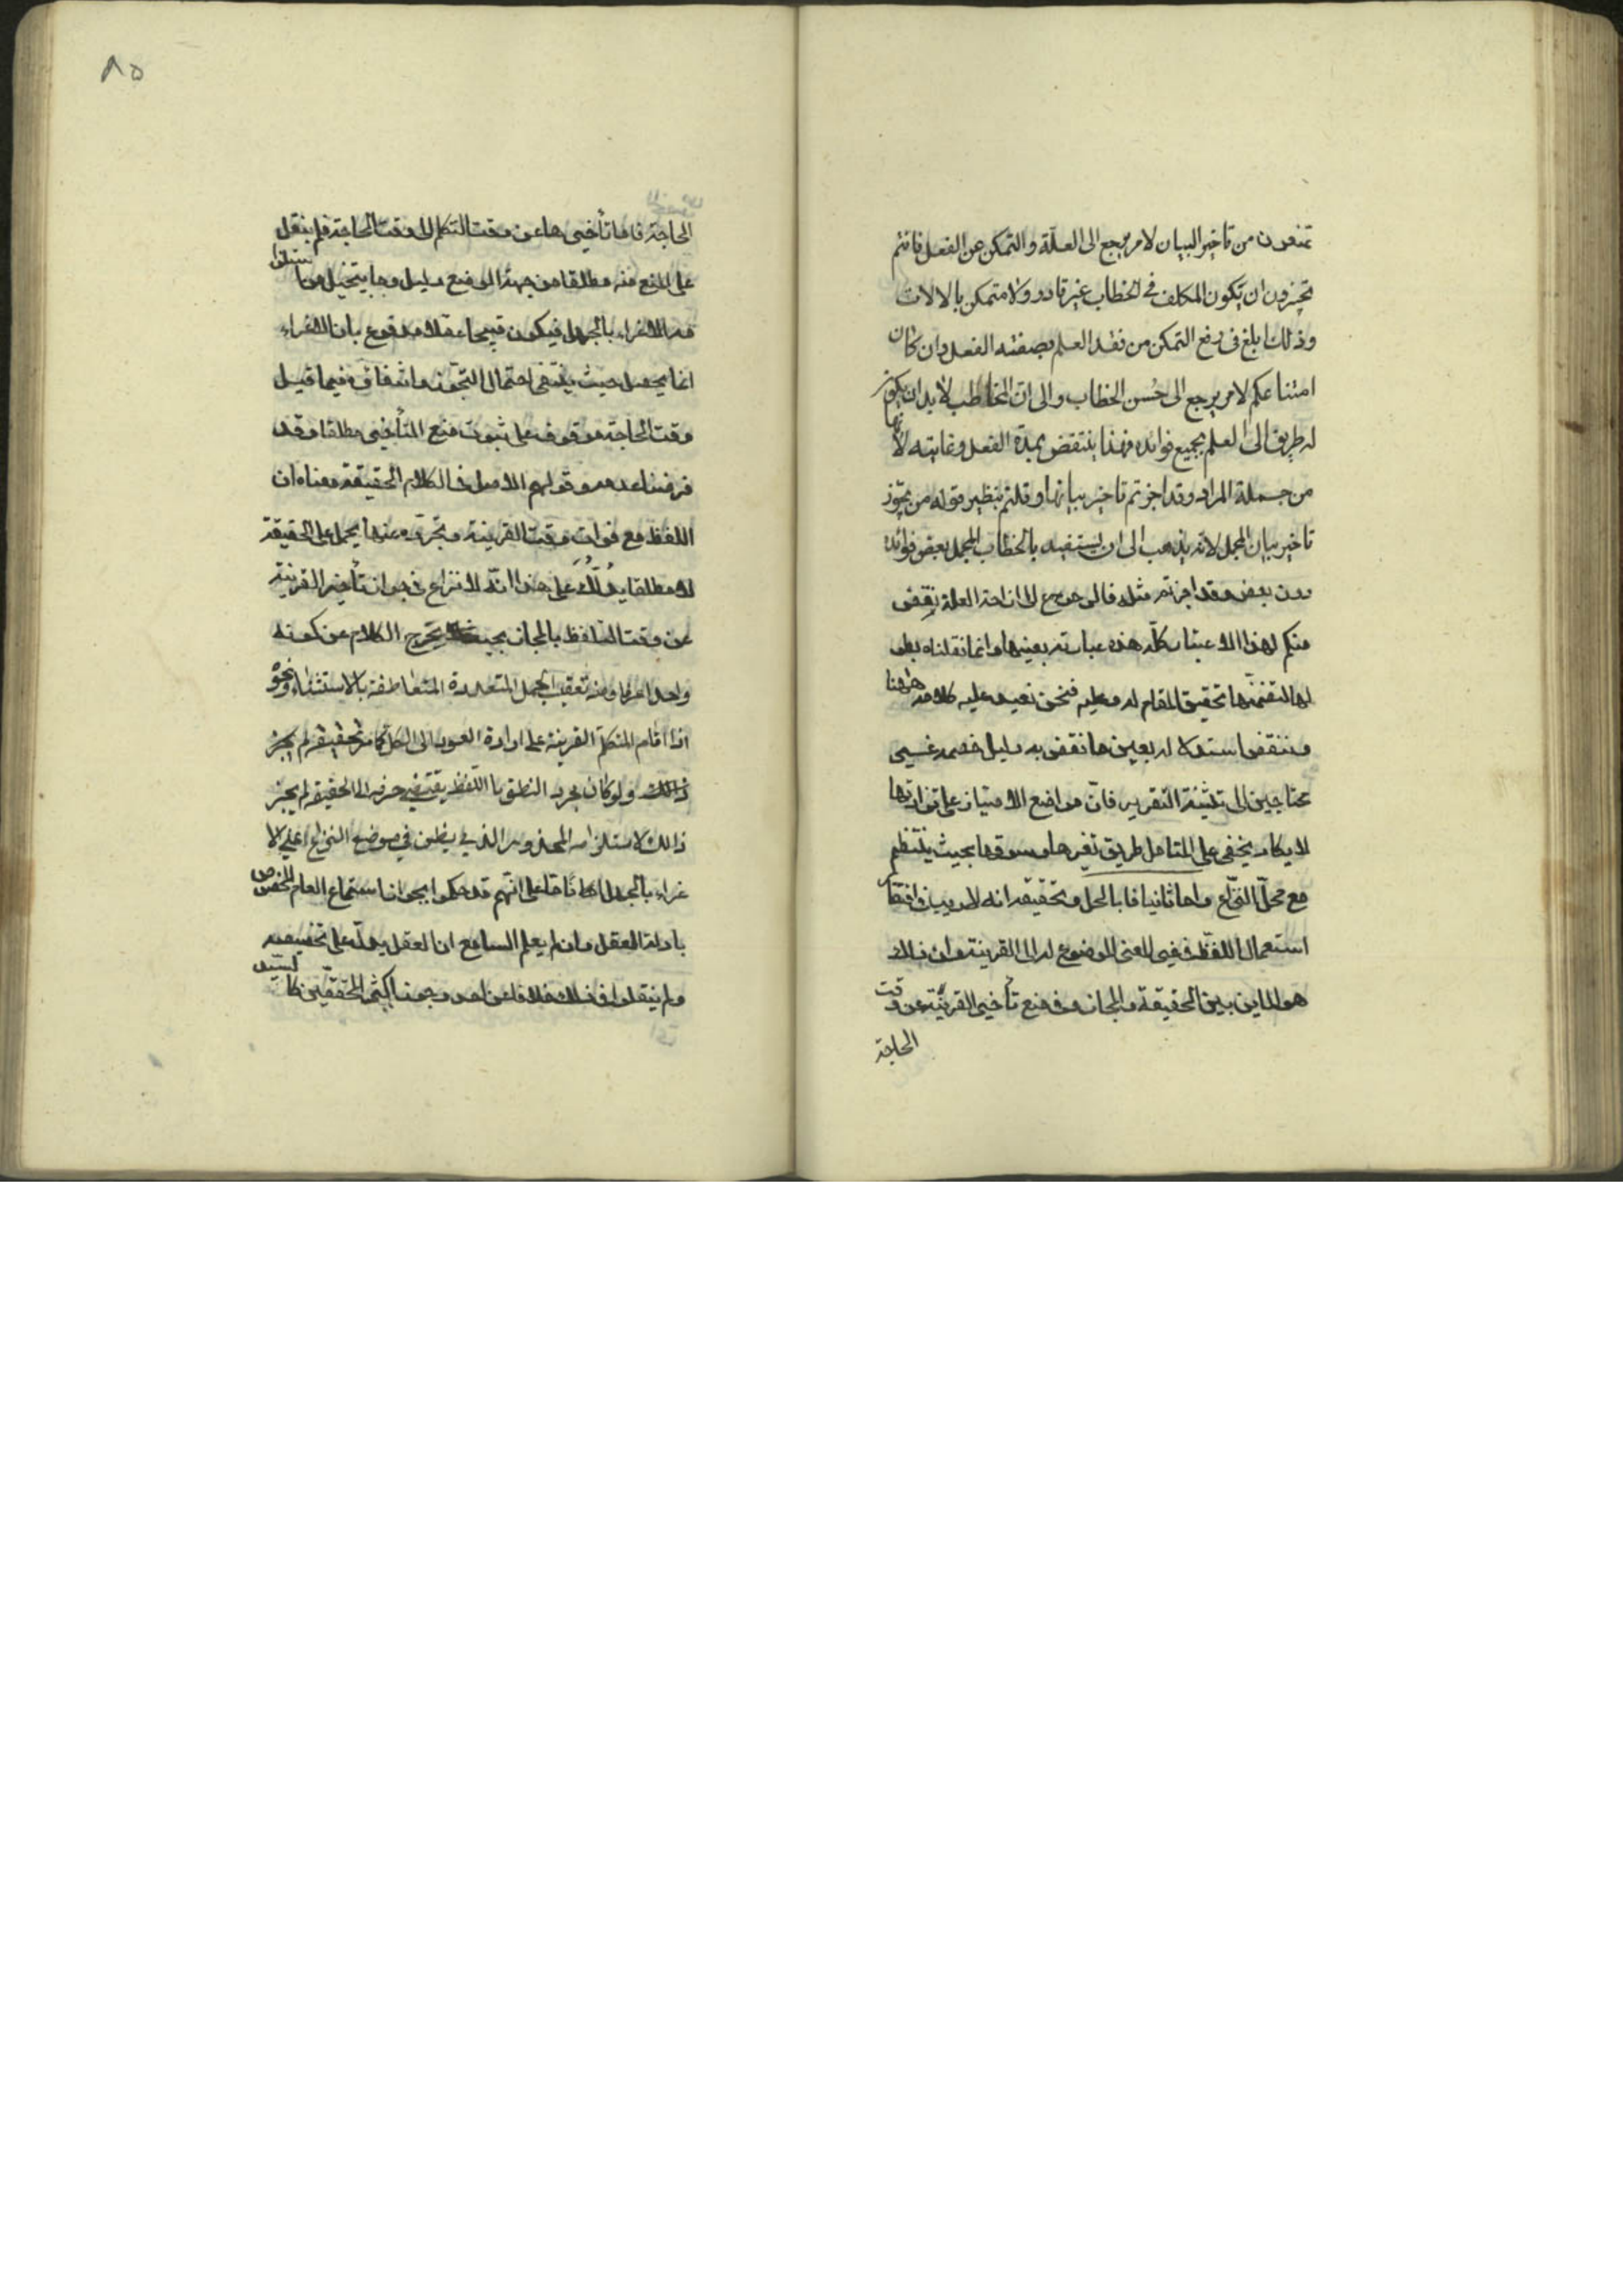 تمنعون من تاخير البيان لامر يرجع الى العلّة والتمكن من الفعل فانتم
تجيزون ان يكون المكلف في الخطاب غير قادر ولا متمكن بالالات
وذلك ابلغ في رفع التمكن من فقد العلم بصفته الفعل وان كان
امتناعكم لامر يرجع الى حُسن الخطاب والى انّ المخاطب لا بد ان يكون
له طريق الى العلم بجميع فوائده فهذا ينتقض بمدة الفعل وغايته لأنها
من جملة المراد وقد اجزتم تاخير بيانها وقلتم بنظير قوله من يجوّز
تاخير بيان المجمل لانه يذهب الى ان يستفيد بالخطاب المجمل بعض فوائده
دون بعض وقد اجزتم مثله فالرجوع الى ازاحة العلة نقض
منكم لهذا الاعتبار كلّه هذه عبارته بعينها وانما نقلناه بطو
لها لتضمنّها تحقيق المقام له وعليه فنحن نعيد عليه كلامه هٰهنا
وننقض استدلاله بعين ما نقض به دليل خصمه غير
محتاجين الى تثنية التقرير فانّ مواضع الامتياز على نزارتها
لا يكاد يخفى على المتامل طريق تغيرها وسوقها بحيث ينتظم
مع محلّ النزاع واما ثانيا فا بالحل وتحقيقه انه لا ريب في افتقار
استعمال اللفظ في غير المعنى الموضوع له الى القرينة وان ذلك
هو المايز بين الحقيقة والمجاز وفي منع تأخير القرينة عن وقت
الحاجة
٨٥
الحاجة فاما تأخيرها عن وقت التكلم الى وقت الحاجة فلم ينقل
على المنع منه مطلقا من جهة الوضع دليل وما يتخيل من استلزا
مه الاغراء بالجهل فيكون قبيحا عقلا مدفوع بان الاغراء
انما يحصل حيث ينتفى احتمال التجوز وانتفاؤه فيما قبل
وقت الحاجة موقوف على ثبوت منع التأخير مطلقا وقد
فرضنا عدمه وقولهم الاصل في الكلام الحقيقة معناه ان
اللفظ مع فوات وقت القرينة وتجرّده عنها يحمل على الحقيقة
لا مطلقا يدلّك على هذا انّه لا نزاع في جواز تأخير القرينة
عن وقت التلفظ بالمجاز بحيث لا يخرج الكلام عن كونه
واحدا عرفا ومنه تعقب الجمل المتعددة المتعاطفة بالاستثناء ونحوه
اذا اقام المتكلم القرينة على ارادة العود الى الكل كما مر تحقيقه لم يجز
ذلك ولو كان مجرد النطق باللفظ يقتضي صرفه الى الحقيقة لم يجز
ذالك لاستلزامه المحذور الذي يظن في موضع النزاع اعني الا
غراء بالجهل اناً على انّهم قد حكموا بجواز استماع العام المخصوص
بادلة العقل وان لم يعلم السامع ان العقل يدلّ على تخصيصه
ولم ينقلوا في ذلك خلافا عن احد وجوز اكثر المحققين كالسيد